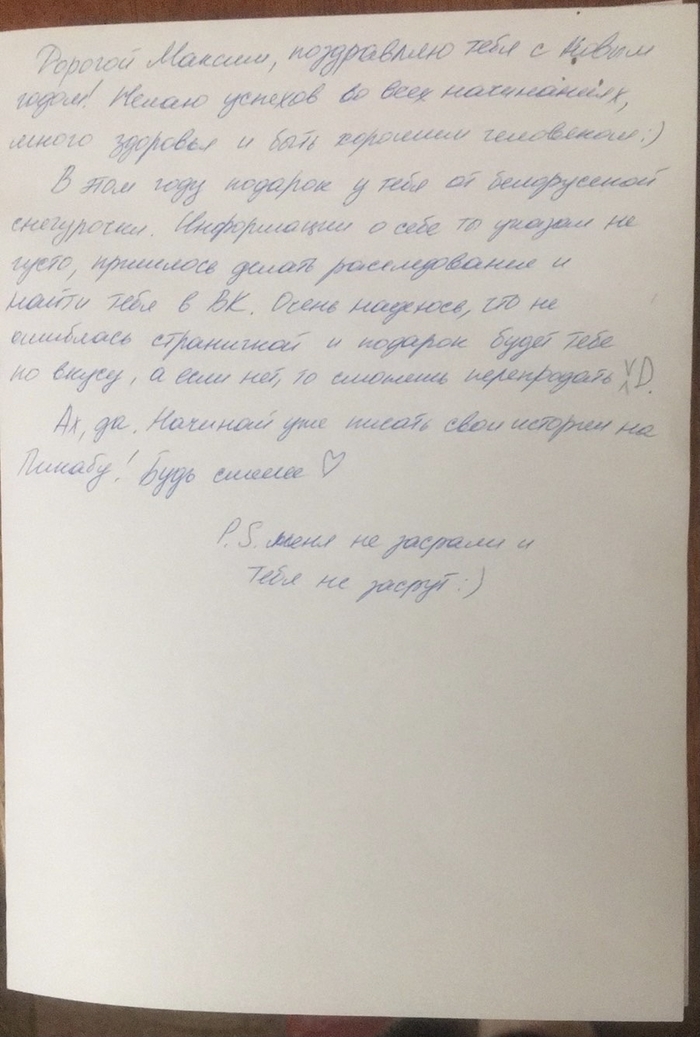 Дорогой Максим, поздравляю тебя с Новым
годом! Желаю успехов во всех начинаниях,
много здоровья и быть хорошим человеком:)
В этом году подарок у тебя от белорусской
снегурочки. Информации о себе то указал не
густо, пришлось делать расследование и
найти тебя в ВК. Очень надеюсь, что не
ошиблась страничкой и подарок будет тебе
по вкусу, а если нет, то сможешь перепродать XD.
Ах, да. Начинай уже писать свои истории на
Пикабу! Будь смелее ♡
P.S. меня не засрали и
тебя не засрут:)